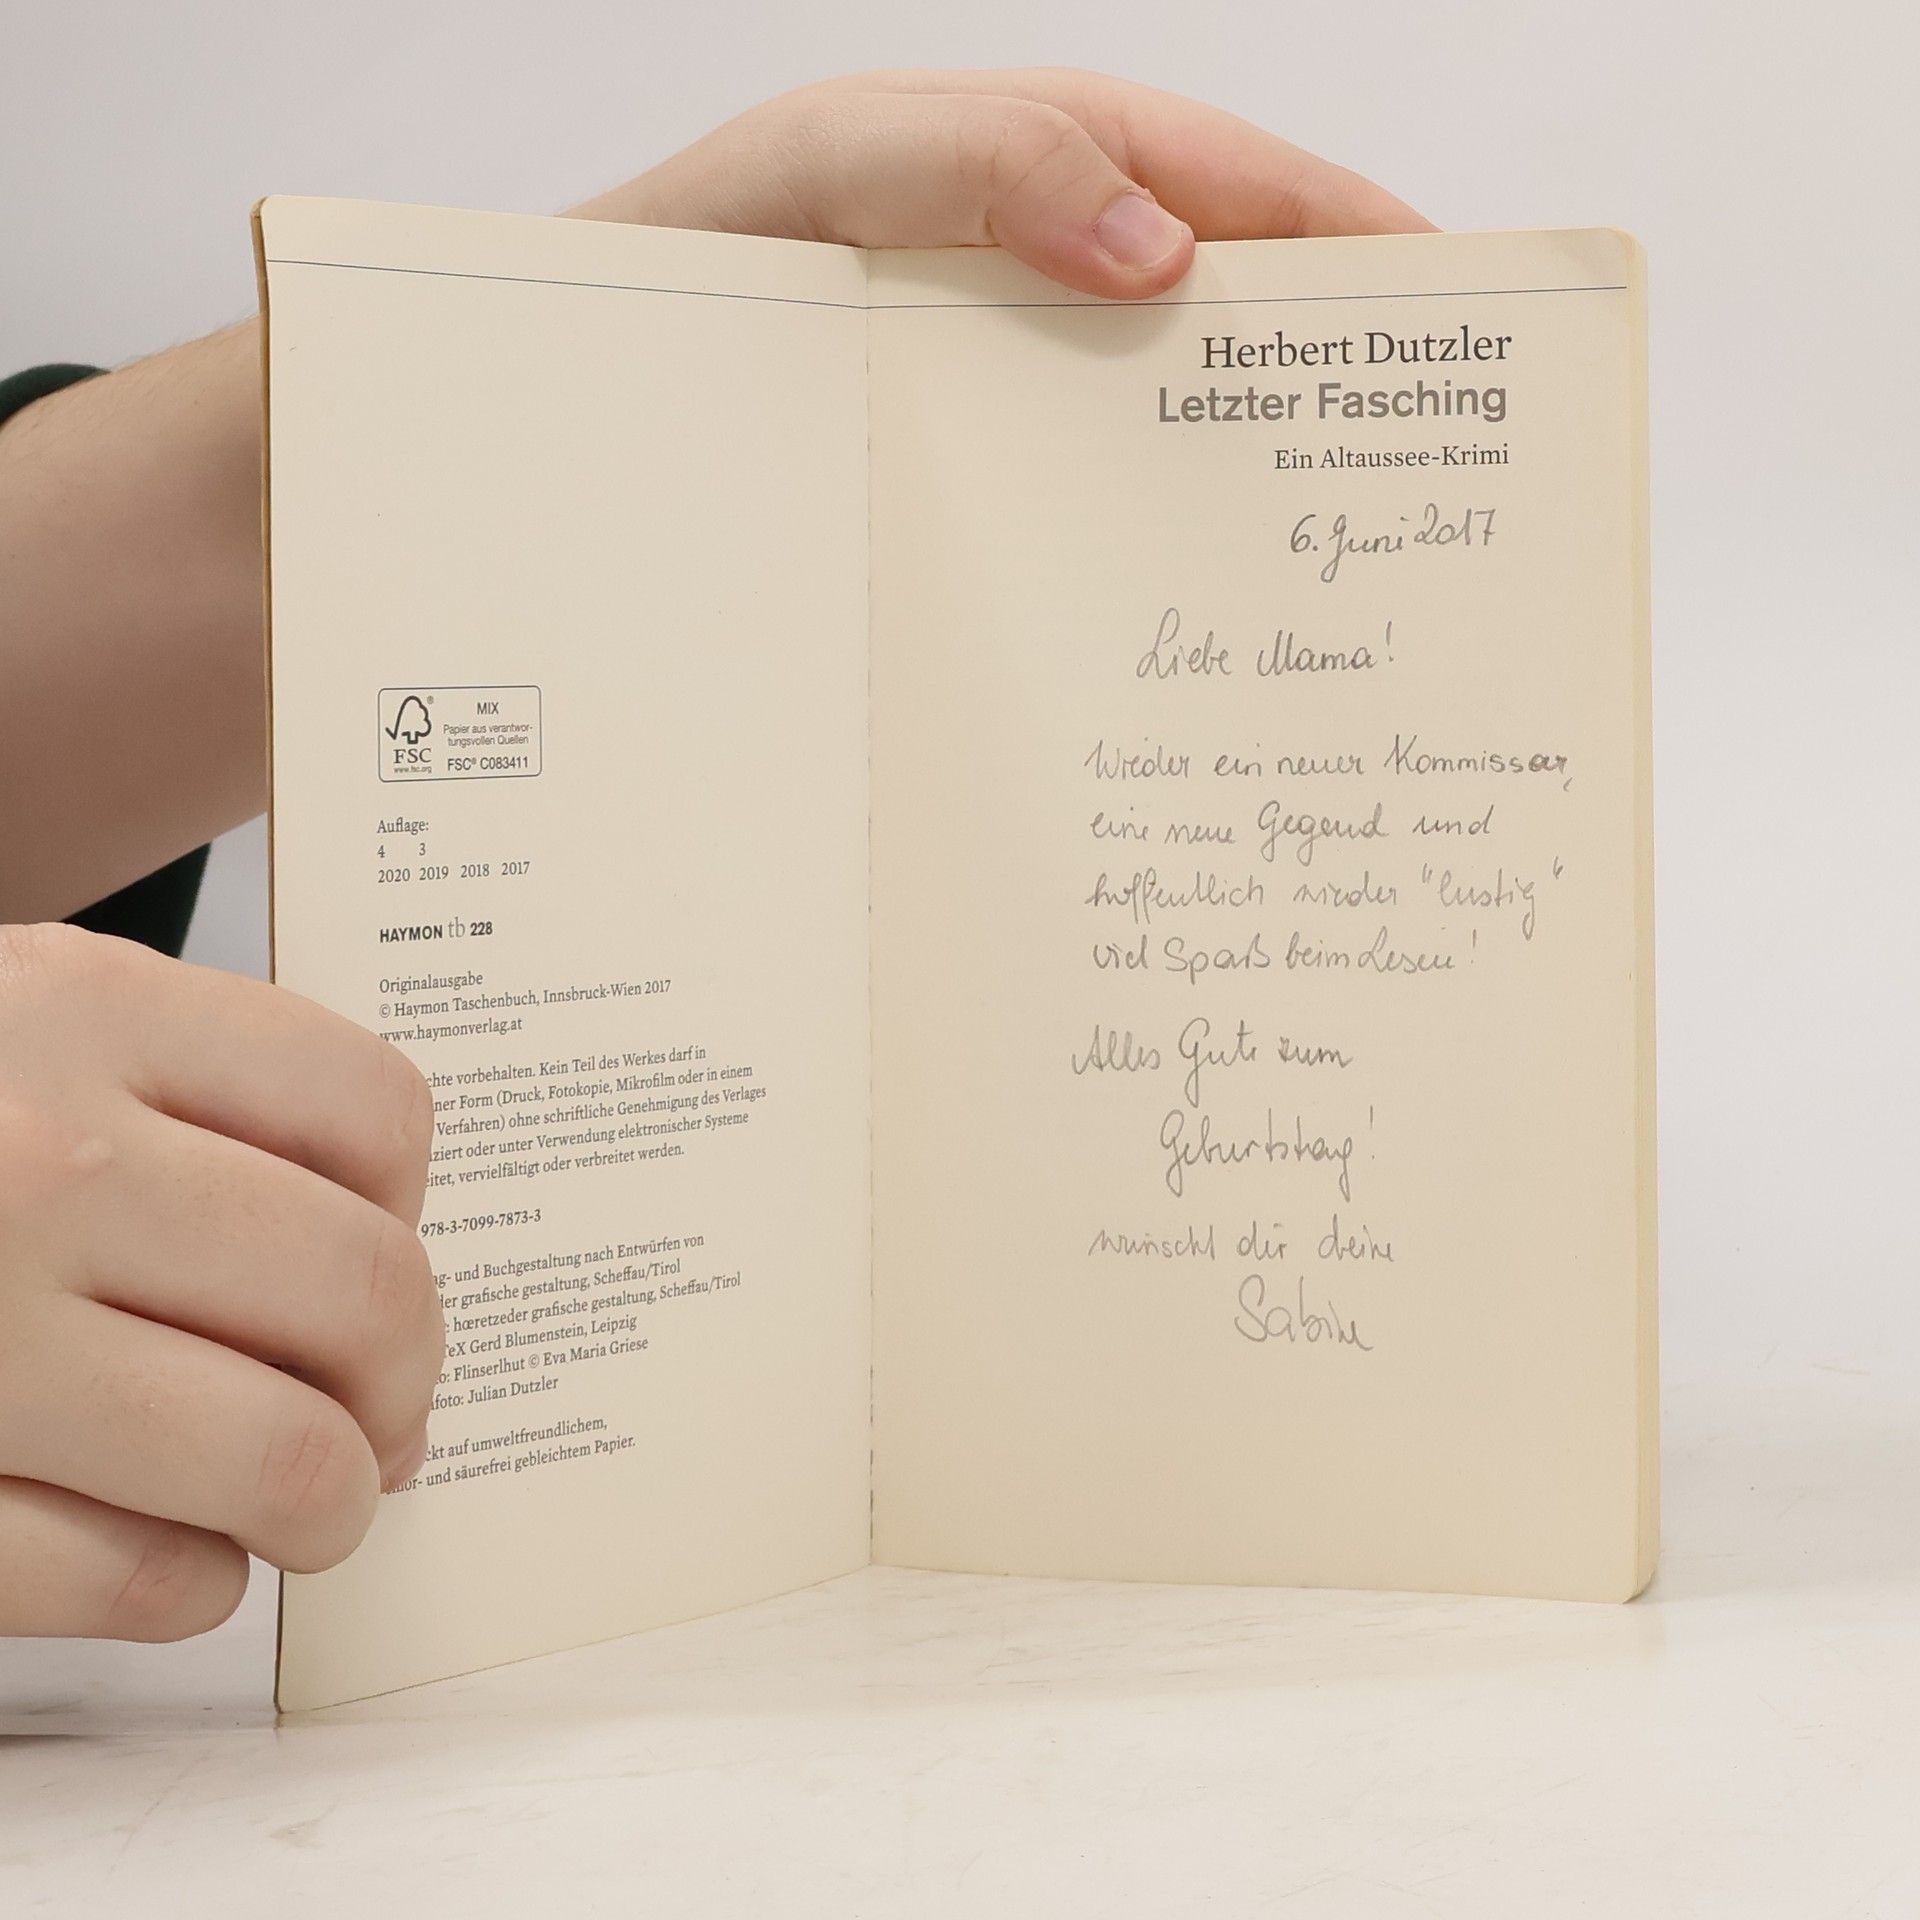 MIX
Papier aus verantwor-
tungsvollen Quellen
FSC® C083411
FSC
www.fsc.org
Auflage:
4 3
2020 2019 2018 2017
HAYMON tb 228
Originalausgabe
© Haymon Taschenbuch, Innsbruck-Wien 2017
www.haymonverlag.at
chte vorbehalten. Kein Teil des Werkes darf in
ner Form (Druck, Fotokopie, Mikrofilm oder in einem
Verfahren) ohne schriftliche Genehmigung des Verlages
ziert oder unter Verwendung elektronischer Systeme
eitet, vervielfältigt oder verbreitet werden.
978-3-7099-7873-3
ag- und Buchgestaltung nach Entwürfen von
der grafische gestaltung, Scheffau/Tirol
: hœretzeder grafische gestaltung, Scheffau/Tirol
TeX Gerd Blumenstein, Leipzig
to: Flinserlhut © Eva Maria Griese
nfoto: Julian Dutzler
ckt auf umweltfreundlichem,
chlor- und säurefrei gebleichtem Papier.
Herbert Dutzler
Letzter Fasching
Ein Altaussee-Krimi
6. Juni 2017
Liebe Mama!
Wieder ein neuer Kommissar,
eine neue Gegend und
hoffentlich wieder "lustig"
viel Spaß beim Lesen!
Alles Gute zum
Geburtstag!
wünscht dir deine
Sabine